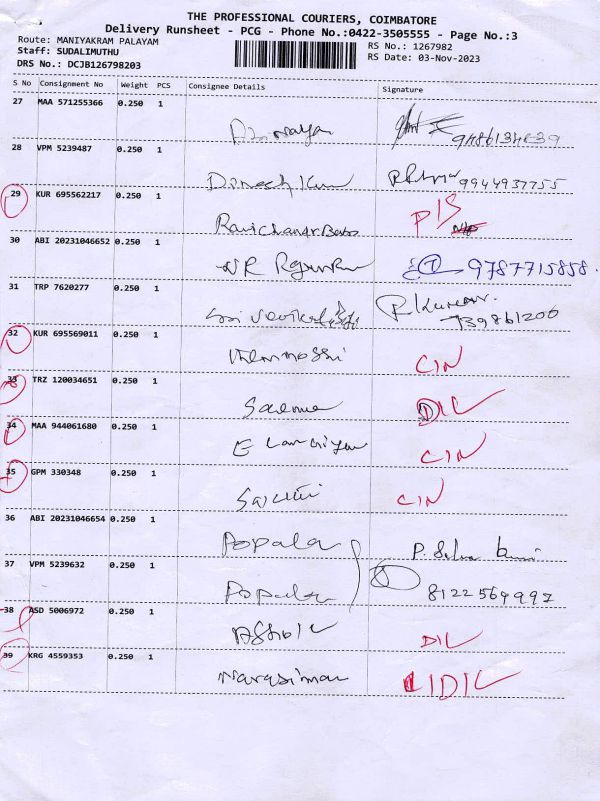 THE PROFESSIONAL COURIERS, COIMBATORE
Delivery Runsheet - PCG - Phone No.:0422-3505555 - Page No.:3
Route: MANIYAKRAM PALAYAM
RS No.: 1267982
Staff: SUDALIMUTHU
RS Date: 03-Nov-2023
DRS No.: DCJB126798203
S No Consignment No Weight PCS Consignee Details Signature
27 MAA 571255366 0.250 1
28 VPM 5239487 0.250 1
Dinesh Kum 9944937755
29 KUR 695562217 0.250 1
Ravichandr Babo P/S
30 ABI 20231046652 0.250 1
NR 9787715858
31 TRP 7620277 0.250 1
Sri P Kumar
739861200
32 KUR 695569011 0.250 1
CIN
33 TRZ 120034651 0.250 1
DIL
34 MAA 944061680 0.250 1
CIN
35 GPM 330348 0.250 1
CIN
36 ABI 20231046654 0.250 1
Popala P. Selva
37 VPM 5239632 0.250 1
Popala 8122569997
38 ASD 5006972 0.250 1
Ashok DIL
39 KRG 4559353 0.250 1
Narasiman DIL